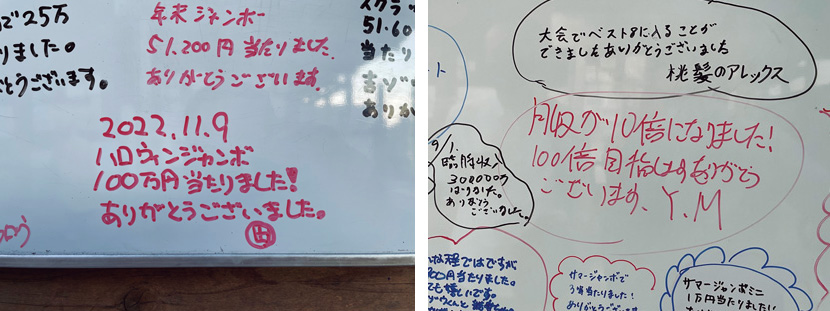 で25万
りました。
とうございます。
年末ジャンボー
51,200円 当たりました
ありがとうございます。
51.60
当たり
ありか
2022.11.9
ハロウィンジャンボ
100万円当たりました!
ありがとうございました。
田
大会でベスト8に入ることが
できましたありがとうございました
桃髪のアレックス
ート
月収が10倍になりました!
100倍目指しますありがとう
ございます、Y.M
9/1.
臨時収入
300000万
はいりました。
ありがとう
ございました。
な程ではですが
00円当たりました。
ても嬉しいです。
サマージャンボで
3等当たりました!
ありがとうございます
サマージャンボミニ
1万円当たりました!!